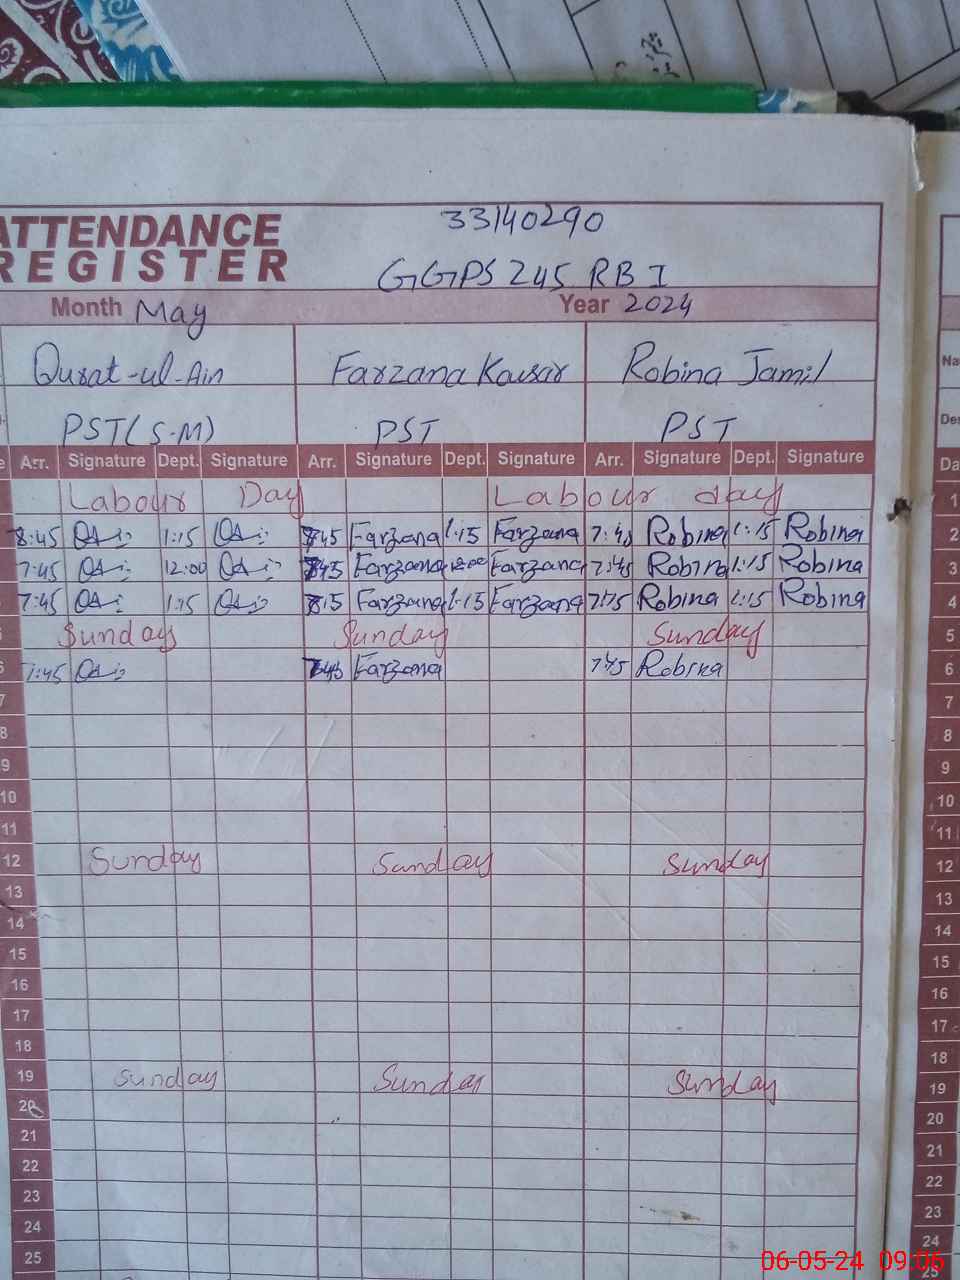 ATTENDANCE 33140290
REGISTER GGPS 245 RB I
Month May Year 2024
Qurat-ul-Ain Farzana Kousar Robina Jamil
PST(S.M) PST PST
Arr. Signature Dept. Signature Arr. Signature Dept. Signature Arr. Signature Dept. Signature Da
Labour Day Labour day 1
8:45 1:15 Farzana 1:15 Farzana Robina 1:15 Robina 2
7:45 12:00 Farzana Farzana 7:45 Robina 1:15 Robina 3
7:45 1:15 Farzana 1:15 Farzana Robina 1:15 Robina 4
Sunday Sunday Sunday 5
7:45 Farzana 7:45 Robina 6
7 7
8 8
9 9
10 10
11 11
12 Sunday Sunday Sunday 12
13 13
14 14
15 15
16 16
17 17
18 18
19 Sunday Sunday Sunday 19
20 20
21 21
22 22
23 23
24 24
25 25
06-05-24 09:06